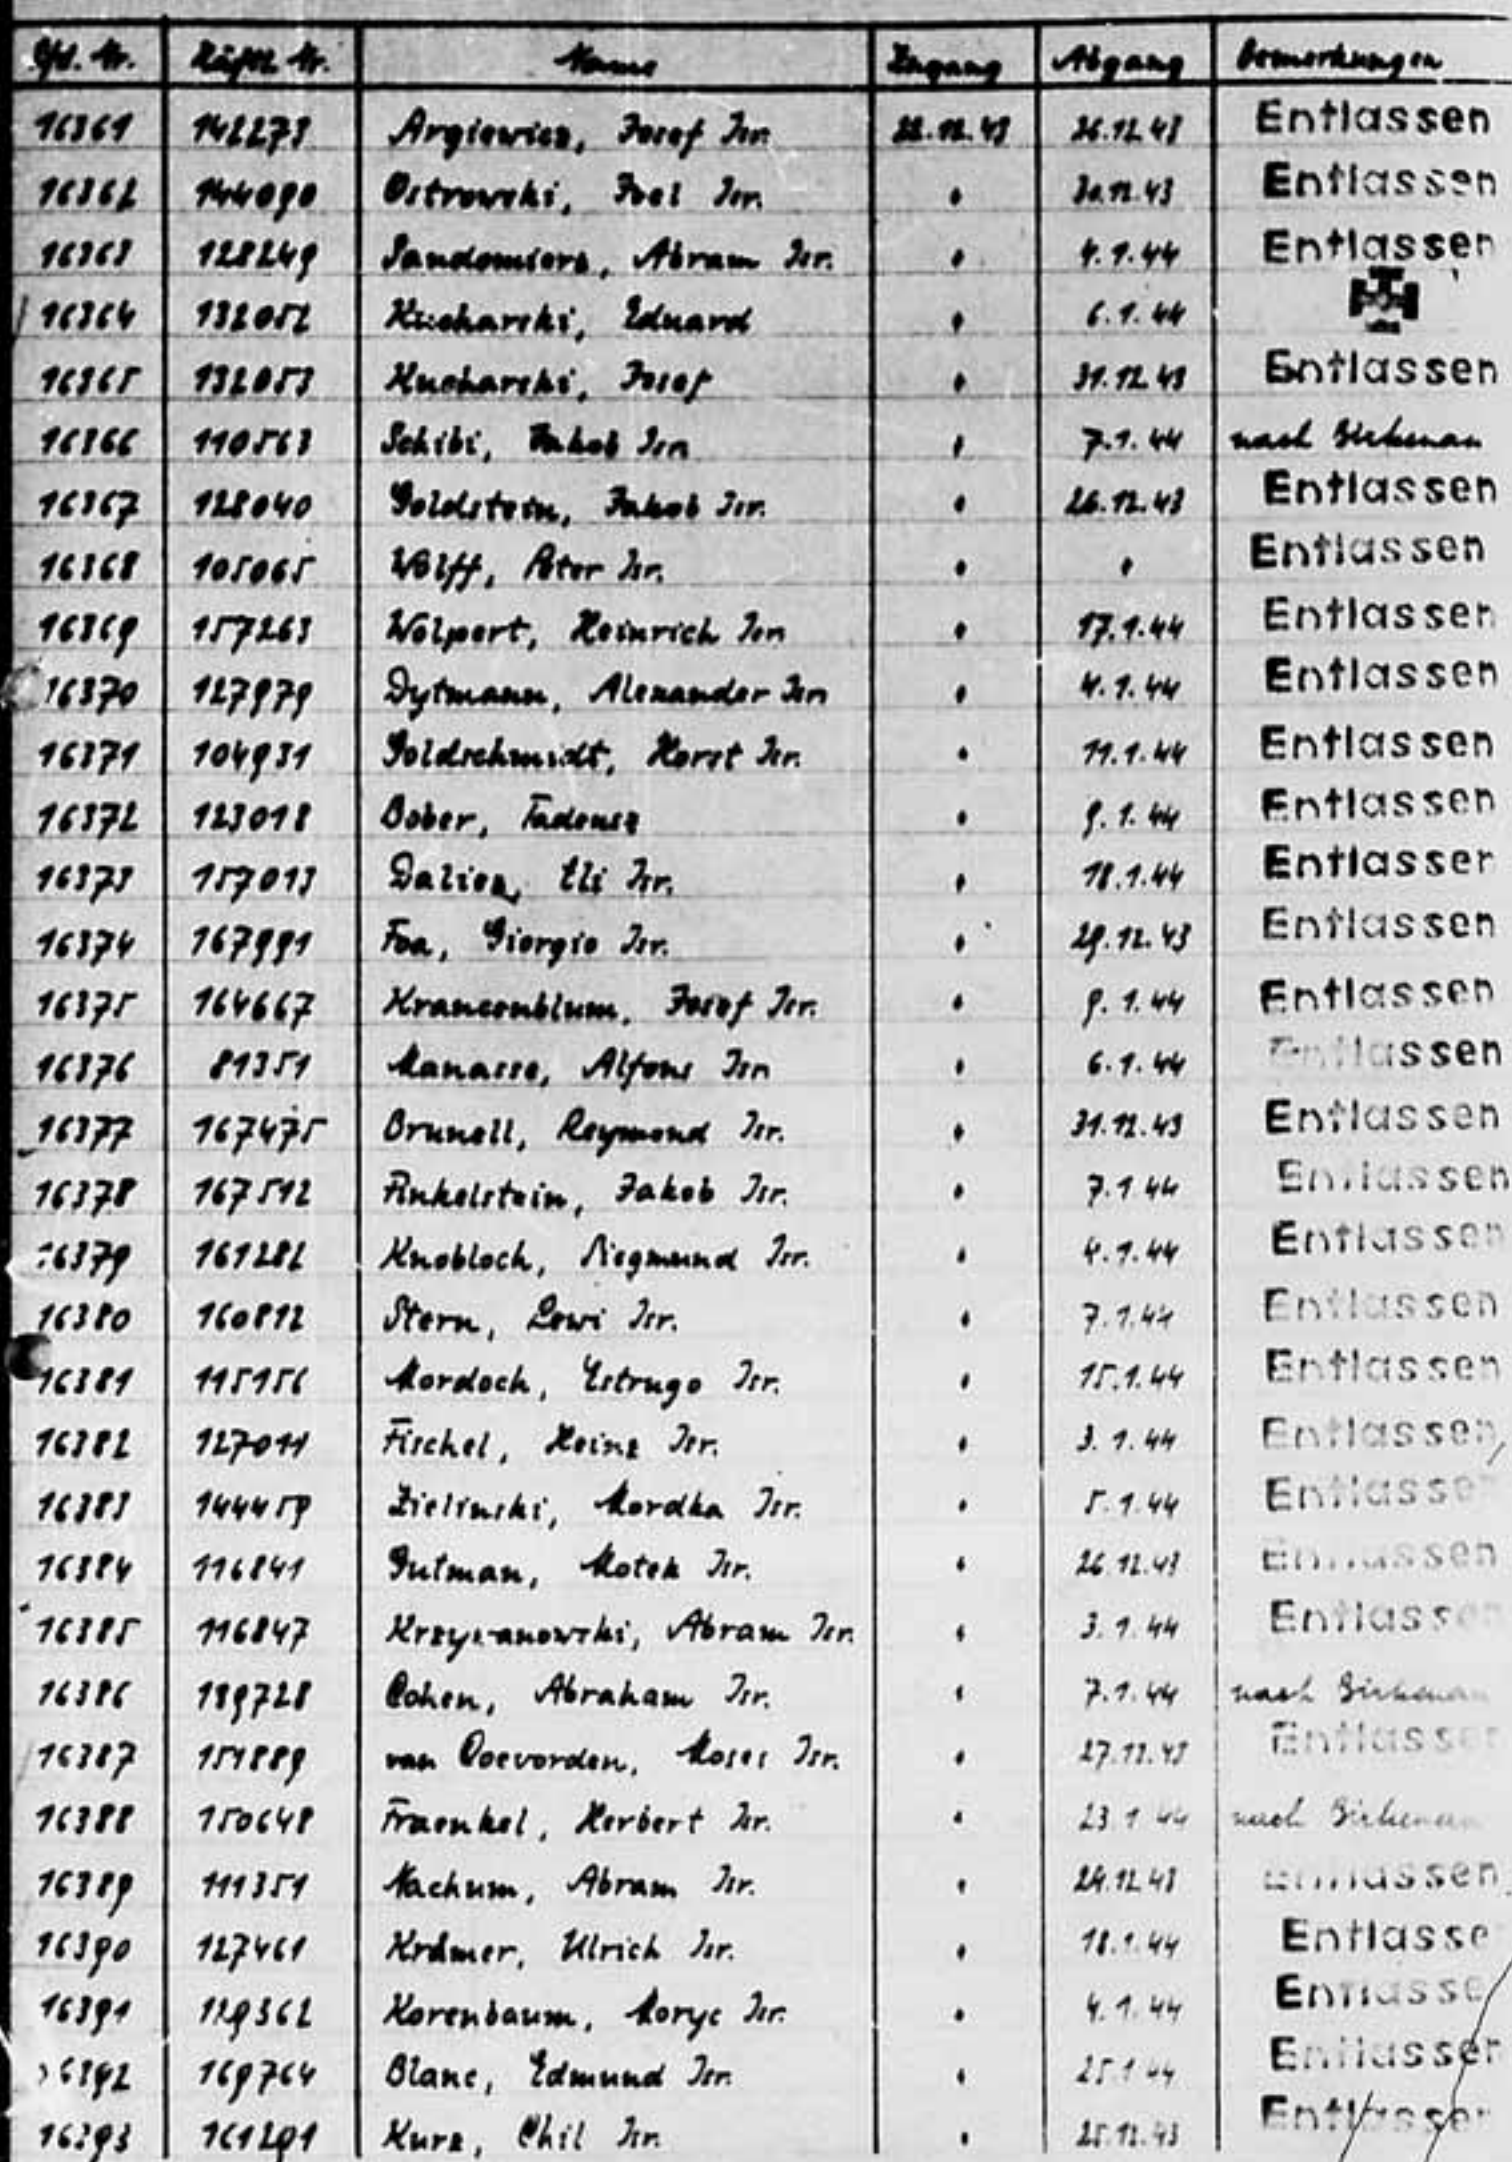 Lfd. Nr. Häftl. Nr. Name Zugang Abgang Bemerkungen
16361 142273 Argiewicz, Josef Isr. 22.12.43 26.12.43 Entlassen
16362 144090 Ostrowski, Joel Isr. " 30.12.43 Entlassen
16363 128249 Sandomierz, Abram Isr. " 4.1.44 Entlassen
16364 132052 Kucharski, Eduard " 6.1.44
16365 132053 Kucharski, Josef " 31.12.43 Entlassen
16366 110563 Schibi, Jakob Isr. " 7.1.44 nach Birkenau
16367 128040 Goldstein, Jakob Isr. " 26.12.43 Entlassen
16368 105065 Wolff, Peter Isr. " " Entlassen
16369 157263 Wolpert, Heinrich Isr. " 17.1.44 Entlassen
16370 127979 Dytmann, Alexander Isr. " 4.1.44 Entlassen
16371 104931 Goldschmidt, Horst Isr. " 11.1.44 Entlassen
16372 123018 Bober, Tadeusz " 9.1.44 Entlassen
16373 157013 Dalicz, Eli Isr. " 18.1.44 Entlassen
16374 167991 Foa, Giorgio Isr. " 29.12.43 Entlassen
16375 164667 Krancenblum, Josef Isr. " 9.1.44 Entlassen
16376 81351 Manasse, Alfons Isr. " 6.1.44 Entlassen
16377 167475 Brunell, Reymond Isr. " 31.12.43 Entlassen
16378 167512 Finkelstein, Jakob Isr. " 7.1.44 Entlassen
16379 161282 Knobloch, Siegmund Isr. " 4.1.44 Entlassen
16380 160812 Stern, Lewi Isr. " 7.1.44 Entlassen
16381 115156 Mordoch, Estrugo Isr. " 15.1.44 Entlassen
16382 127011 Fischel, Heinz Isr. " 3.1.44 Entlassen
16383 144459 Zielinski, Mordka Isr. " 5.1.44 Entlassen
16384 116841 Gutman, Motek Isr. " 26.12.43 Entlassen
16385 116847 Krzyzanowski, Abram Isr. " 3.1.44 Entlassen
16386 139728 Cohen, Abraham Isr. " 7.1.44 nach Birkenau
16387 151889 van Coevorden, Moses Isr. " 27.12.43 Entlassen
16388 150648 Fraenkel, Herbert Isr. " 23.1.44 nach Birkenau
16389 111351 Nachum, Abram Isr. " 24.12.43 Entlassen
16390 127461 Krämer, Ulrich Isr. " 18.1.44 Entlassen
16391 129362 Korenbaum, Moryc Isr. " 4.1.44 Entlassen
16392 169764 Blanc, Edmund Isr. " 25.1.44 Entlassen
16393 161291 Kurz, Chil Isr. " 25.12.43 Entlassen